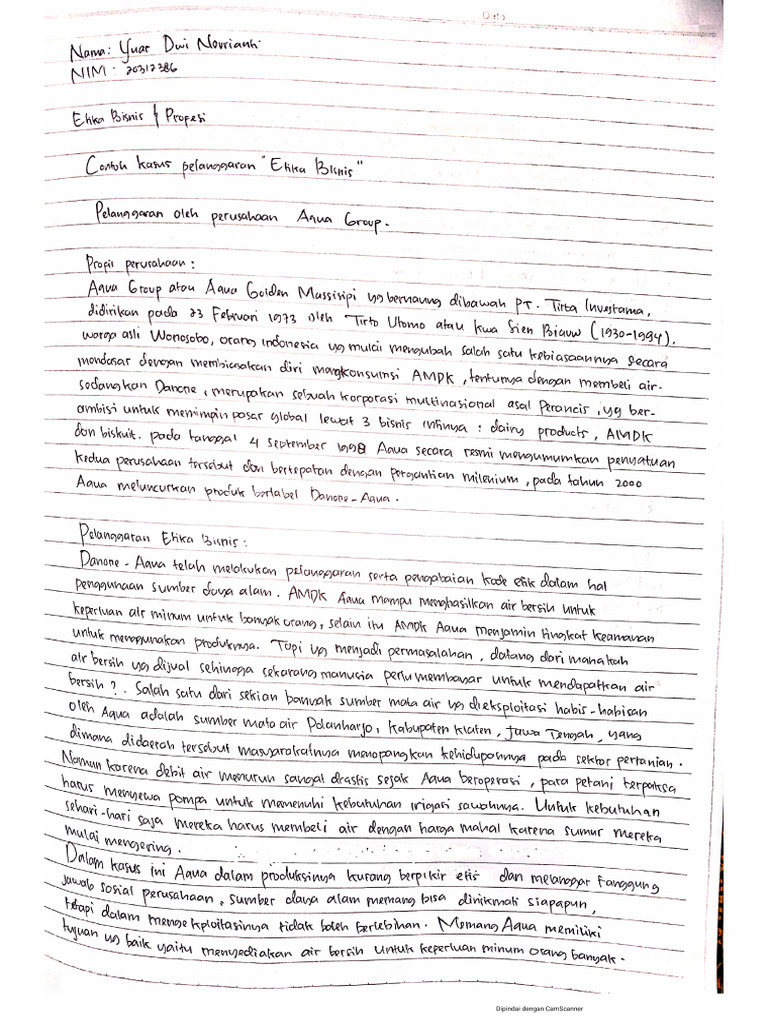 Date
Nama: Yuar Dwi Novrianti
NIM : 20312386
Etika Bisnis & Propesi
Contoh kasus pelanggaran "Etika Bisnis"
Pelanggaran oleh perusahaan Aqua Group.
Profil perusahaan :
Aqua Group atau Aqua Golden Massisipi yg bernaung dibawah PT. Tirta Investama,
didirikan pada 23 Februari 1973 oleh Tirto Utomo atau Kwa Sien Biauw (1930-1994),
warga asli Wonosobo, orang indonesia yg mulai mengubah salah satu kebiasaannya secara
mendasar dengan membiasakan diri mengkonsumsi AMDK, tentunya dengan membeli air.
sedangkan Danone, merupakan sebuah korporasi multinasional asal Perancis, yg ber-
ambisi untuk memimpin pasar global lewat 3 bisnis intinya : dairy products, AMDK
dan biskuit. pada tanggal 4 september 1998 Aqua secara resmi mengumumkan penyatuan
kedua perusahaan tersebut dan bertepatan dengan pergantian milenium, pada tahun 2000
Aqua meluncurkan produk berlabel Danone-Aqua.
Pelanggaran Etika Bisnis :
Danone - Aqua telah melakukan pelanggaran serta pengabaian kode etik dalam hal
penggunaan sumber daya alam. AMDK Aqua mampu menghasilkan air bersih untuk
keperluan air minum untuk banyak orang, selain itu AMDK Aqua menjamin tingkat keamanan
untuk menggunakan produknya. Tapi yg menjadi permasalahan, datang dari manakah
air bersih yg dijual sehingga sekarang manusia perlu membayar untuk mendapatkan air
bersih ?. Salah satu dari sekian banyak sumber mata air yg dieksploitasi habis-habisan
oleh Aqua adalah sumber mata air Polanharjo, Kabupaten Klaten, Jawa Tengah, yang
dimana didaerah tersebut masyarakatnya menopangkan kehidupannya pada sektor pertanian.
Namun karena debit air menurun sangat drastis sejak Aqua beroperasi, para petani terpaksa
harus menyewa pompa untuk memenuhi kebutuhan irigasi sawahnya. Untuk kebutuhan
sehari-hari saja mereka harus membeli air dengan harga mahal karena sumur mereka
mulai mengering.
Dalam kasus ini Aqua dalam produksinya kurang berpikir etis dan melanggar tanggung
jawab sosial perusahaan, sumber daya alam memang bisa dinikmati siapapun,
tetapi dalam mengekploitasinya tidak boleh berlebihan. Memang Aqua memiliki
tujuan yg baik yaitu menyediakan air bersih untuk keperluan minum orang banyak.
Dipindai dengan CamScanner